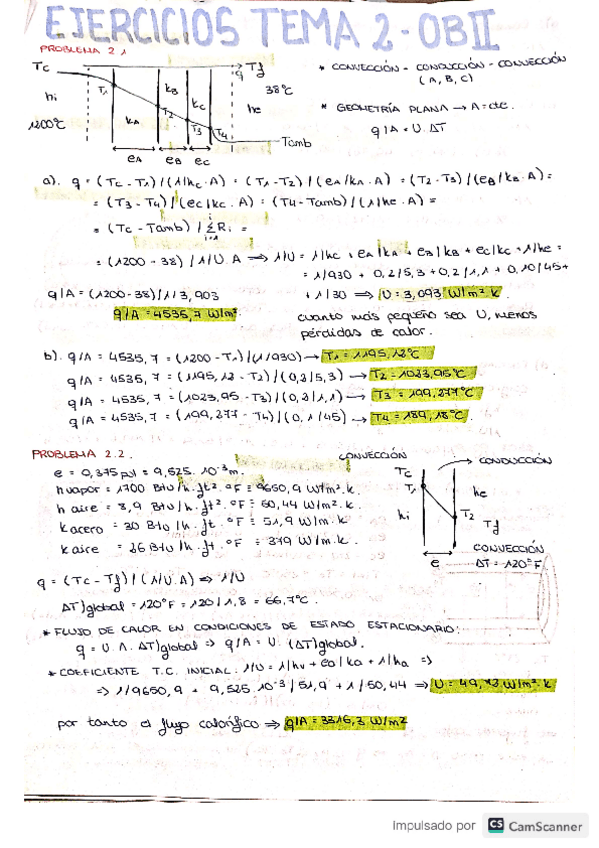 EJERCICIOS TEMA 2 - OBII
PROBLEMA 2.1
Tc Tf * CONVECCIÓN - CONDUCCIÓN - CONVECCIÓN
q (A, B, C)
T1 kB 38°C
hi kC he * GEOMETRÍA PLANA → A = cte.
T2 q/A = U. ΔT
1200°C kA T3 T4
Tamb
eA eB eC
a). q = (Tc - T1) / (1/hc . A) = (T1 - T2) / (eA/kA . A) = (T2 - T3) / (eB/kB . A) =
= (T3 - T4) / (ec/kc . A) = (T4 - Tamb) / (1/he . A) =
= (Tc - Tamb) / Σ Ri =
= (1200 - 38) / 1/U. A ⟹ 1/U = 1/hc + eA/kA + eB/kB + ec/kc + 1/he =
= 1/930 + 0,2/5,3 + 0,2/1,1 + 0,10/45 +
q/A = (1200 - 38) / 1/3,903 + 1/30 ⟹ U = 3,093 W/m². k
q/A = 4535,7 W/m² cuanto más pequeño sea U, menos
pérdidas de calor.
b). q/A = 4535,7 = (1200 - T1) / (1/930) → T1 = 1195,12°C
q/A = 4535,7 = (1195,12 - T2) / (0,2/5,3) → T2 = 1023,95°C
q/A = 4535,7 = (1023,95 - T3) / (0,2/1,1) → T3 = 199,277°C
q/A = 4535,7 = (199,277 - T4) / (0,1/45) → T4 = 189,18°C
PROBLEMA 2.2. CONVECCIÓN
e = 0,375 pul = 9,525. 10⁻³ m. Tc → CONDUCCIÓN
h vapor = 1700 Btu/h. ft². °F = 9650,9 W/m². k. T1 he
h aire = 8,9 Btu/h. ft². °F = 50,44 W/m². k. hi T2
k acero = 30 Btu/h. ft. °F = 51,9 W/m. k. Tf
k aire = 26 Btu/h. ft. °F = 379 W/m. k. CONVECCIÓN
e ΔT = 120°F
q = (Tc - Tf) / (1/U. A) ⟹ 1/U
ΔT)global = 120°F = 120/1,8 = 66,7°C.
* FLUJO DE CALOR EN CONDICIONES DE ESTADO ESTACIONARIO:
q = U. A. ΔT)global ⟹ q/A = U. (ΔT)global.
* COEFICIENTE T.C. INICIAL: 1/U = 1/hv + ea/ka + 1/ha ⟹
⟹ 1/9650,9 + 9,525. 10⁻³/51,9 + 1/50,44 ⟹ U = 49,73 W/m². k
por tanto el flujo calorífico ⟹ q/A = 3316,3 W/m²
Impulsado por CS CamScanner